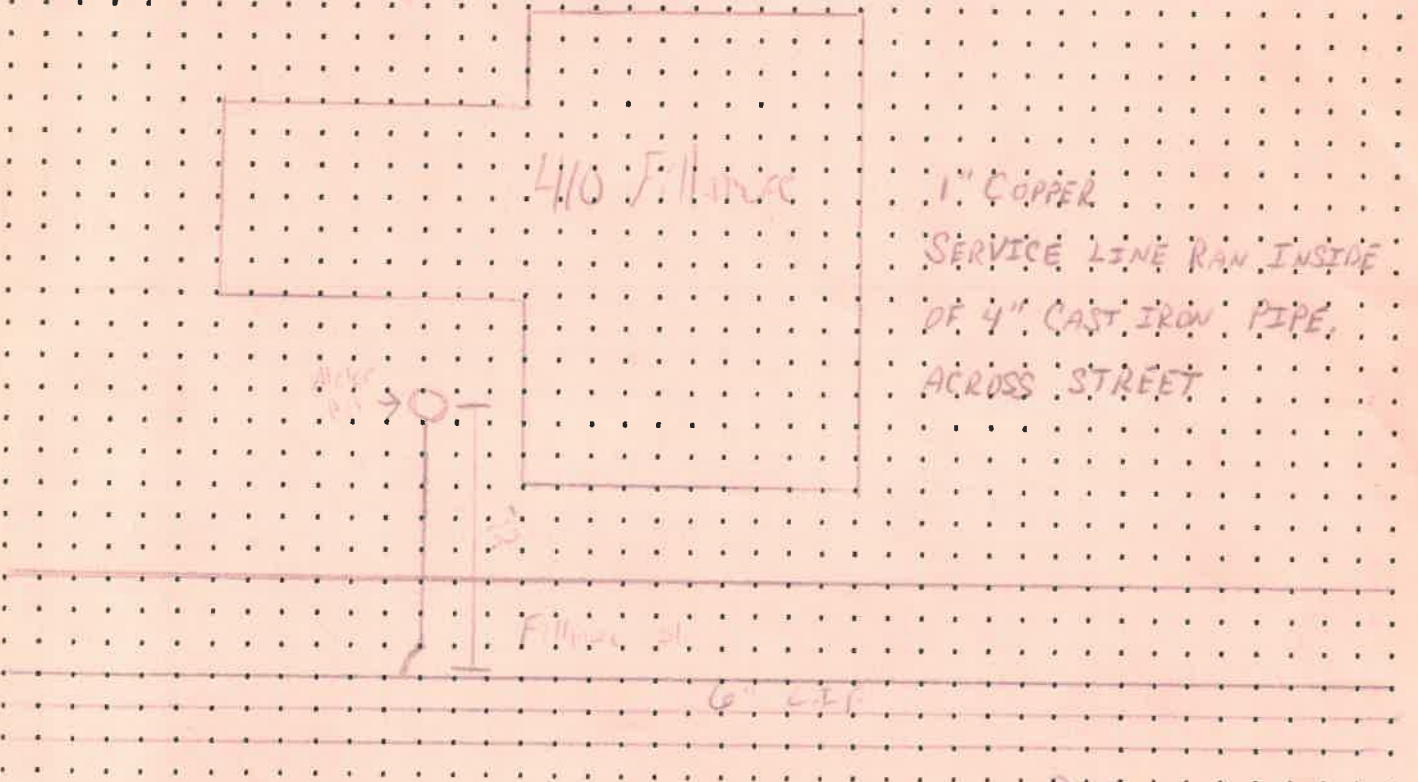 410 Fillmore
1" COPPER
SERVICE LINE RAN INSIDE
OF 4" CAST IRON PIPE,
ACROSS STREET
Meter
Pit
Fillmore St.
6" C.I.P.